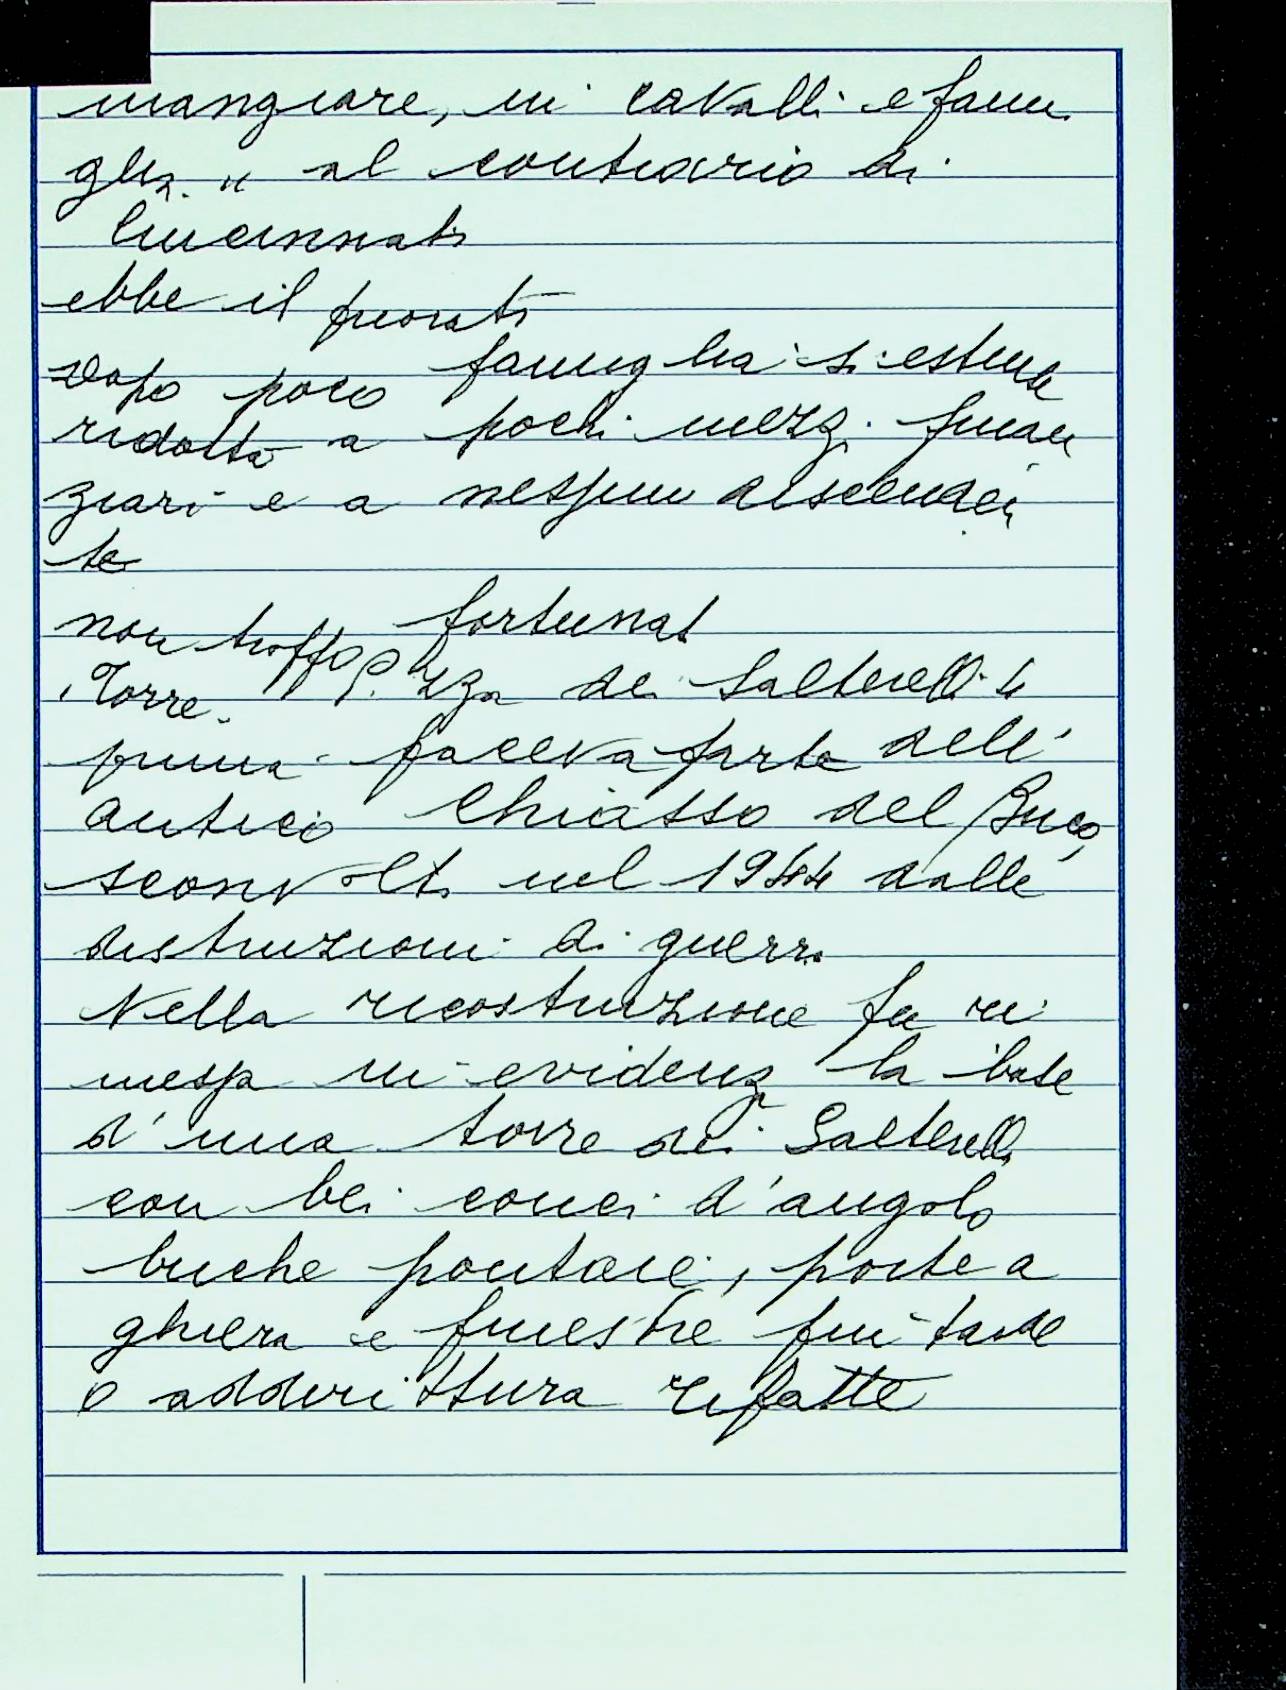 mangiare, in cavalli e fami
glia " al contrario di
Cincinnato
ebbe il priorato
Dopo poco famiglia si estinse
ridotta a pochi mezzi finan
ziari e a nessun discenden
te
non troppo fortunat
Torre P.zza dei Salterelli
prima faceva parte dell'
antico Chiasso del Buco,
sconvolto nel 1944 dalle
distruzioni di guerra
Nella ricostruzione fu ri
messa in evidenza la base
d'una torre dei Salterelli
con bei conci d'angolo
buche pontaie, porte a
ghiera e finestre
o addirittura rifatte